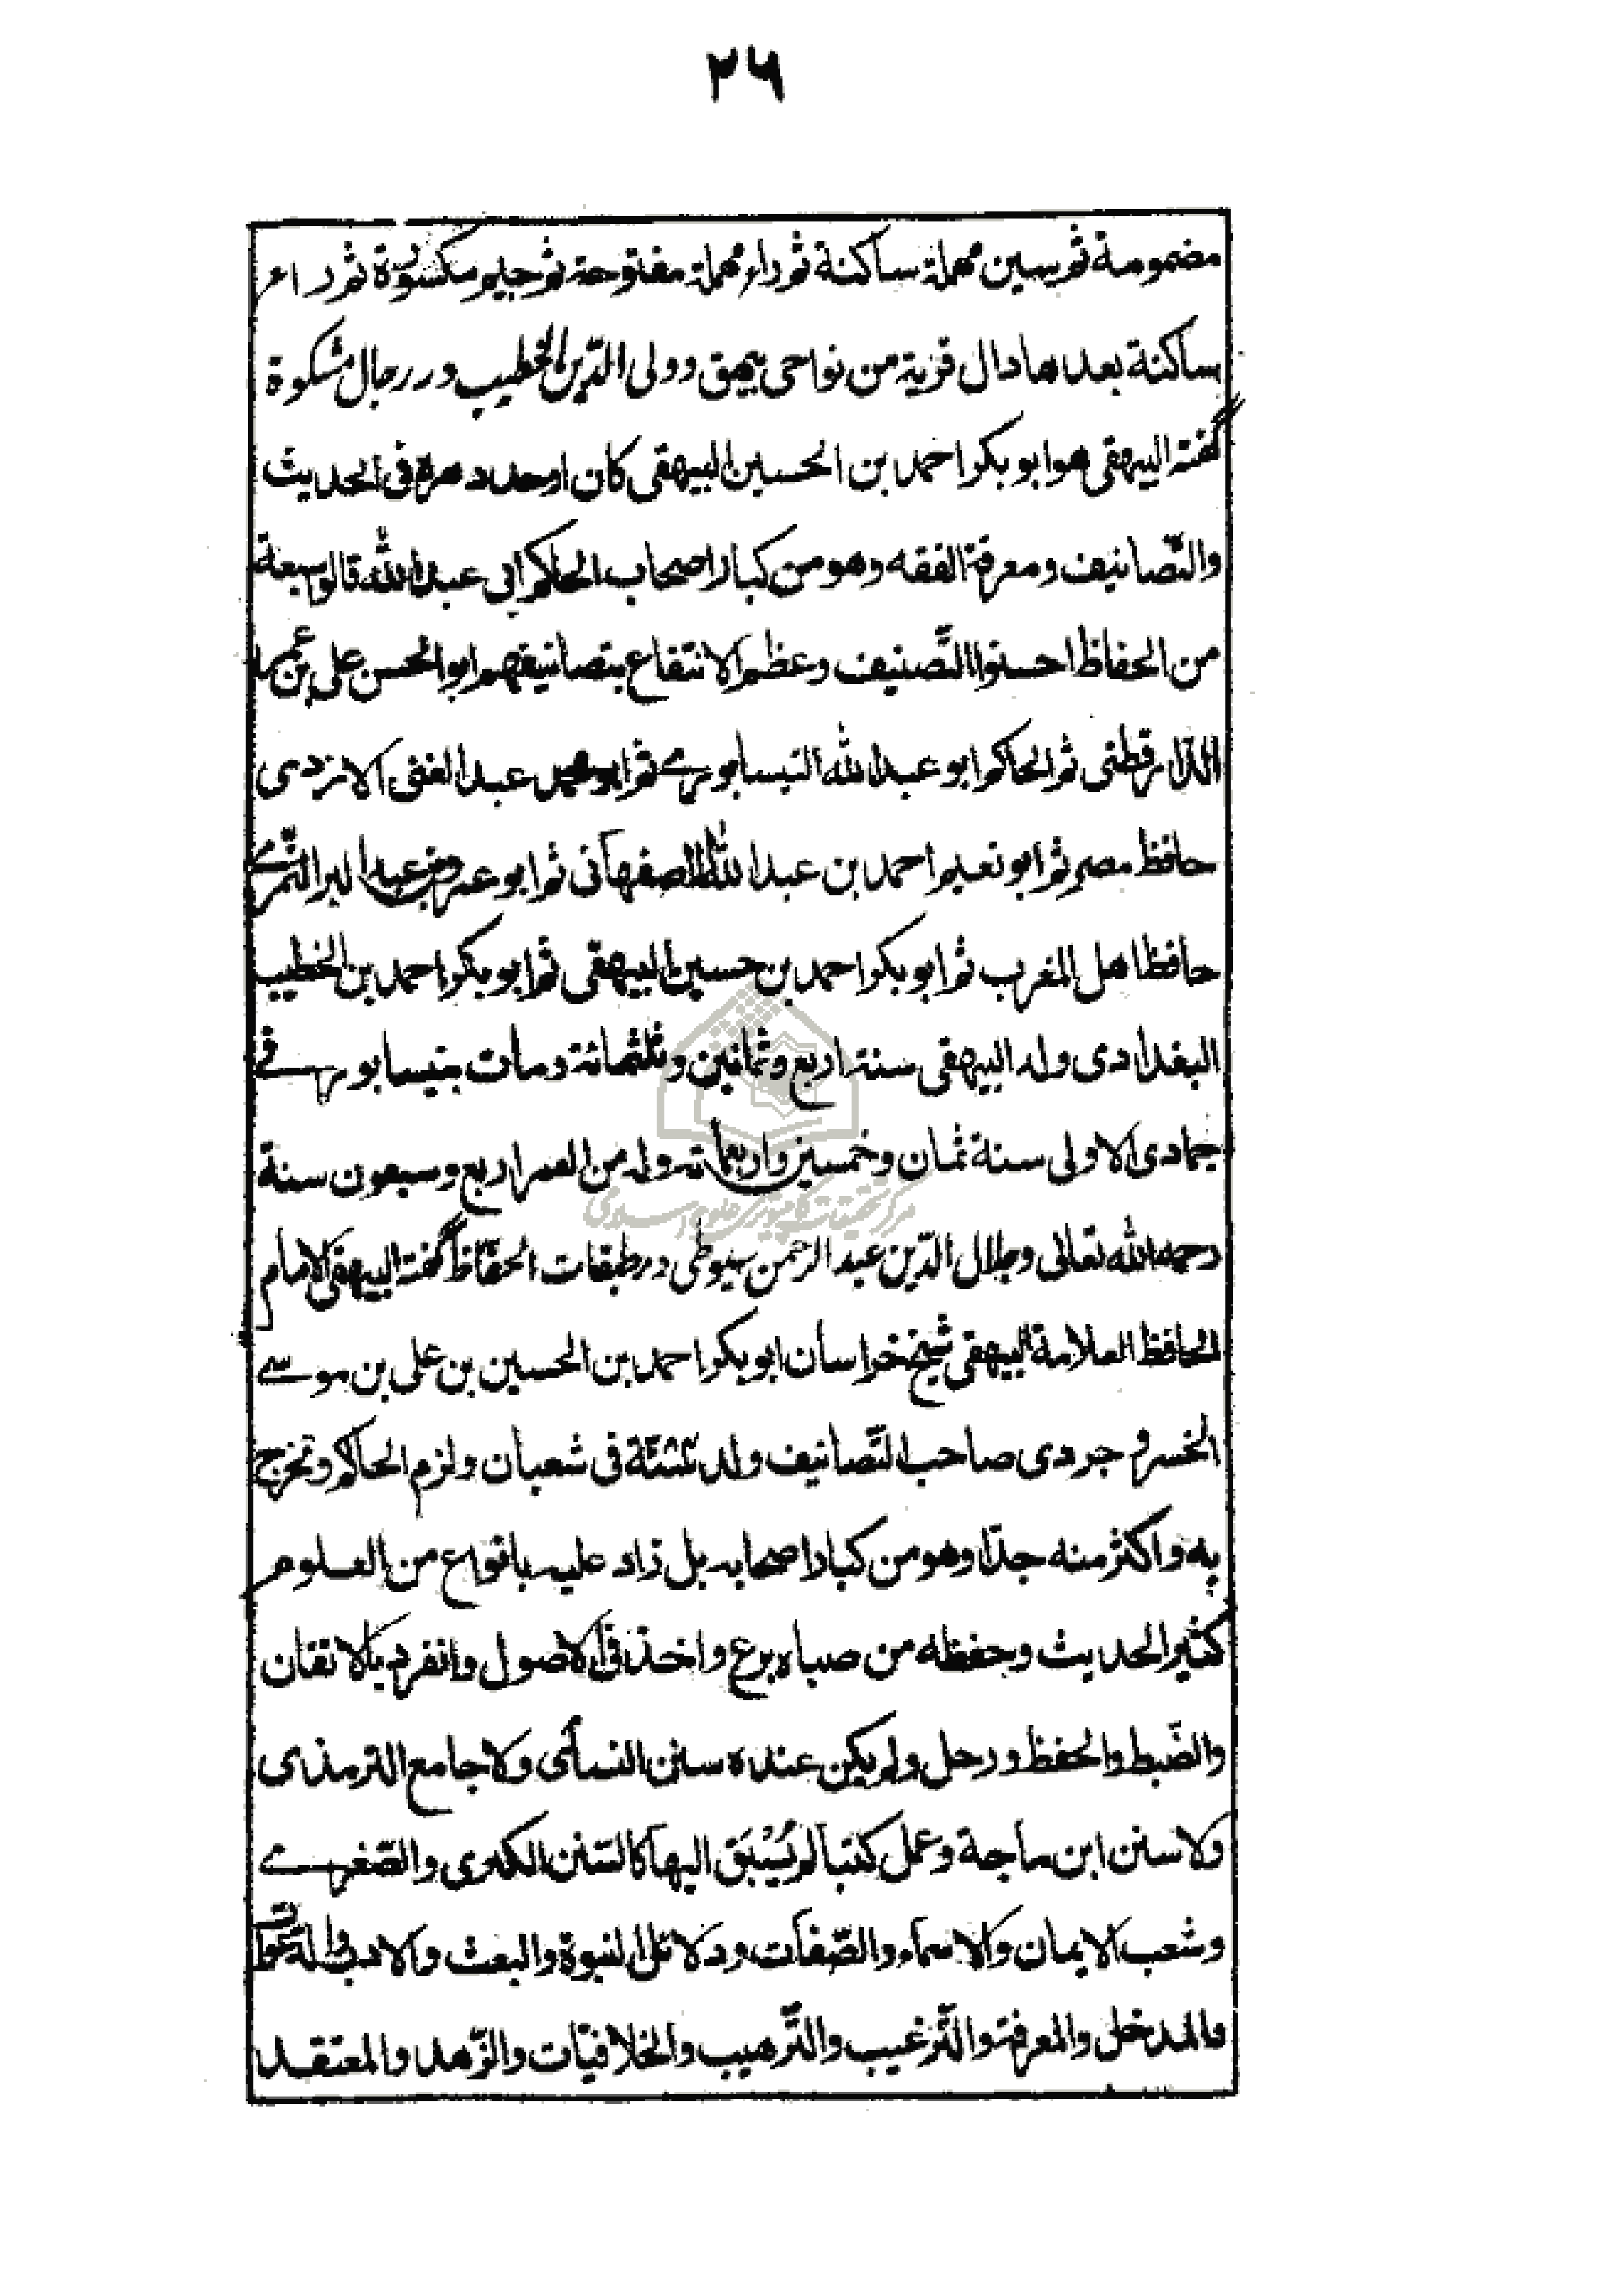 ۲۶
مضمومة ثم سين مهملة ساكنة ثم راء مهملة مفتوحة ثم جيم مكسورة ثم راء
ساكنة بعدها دال قرية من نواحى بيهق وولى الدّين الخطيب در رجال مشكوة
گفته البيهقى هو ابو بكر احمد بن الحسين البيهقى كان اوحد دهره فى الحديث
والتّصانيف ومعرفة الفقه وهو من كبار اصحاب الحاكم ابى عبد الله قالوا سبعة
من الحفاظ احسنوا التّصنيف وعظم الانتفاع بتصانيفهم ابو الحسن على بن عمر
الدّارقطنى ثم الحاكم ابو عبد الله النيسابورے ثم ابو محمد عبد الغنى الازدى
حافظ مصر ثم ابو نعيم احمد بن عبد الله الاصفهانى ثم ابو عمرو بن عبد البر النّمرے
حافظ اهل المغرب ثم ابو بكر احمد بن حسين البيهقى ثم ابو بكر احمد بن الخطيب
البغدادى ولد البيهقى سنة اربع وثمانين وثلثمائة ومات بنيسابور فے
جمادى الاولى سنة ثمان وخمسين واربعمائة وله من العمر اربع وسبعون سنة
رحمه الله تعالى وجلال الدّين عبد الرحمن سيوطى در طبقات الحفّاظ گفته البيهقى الامام
الحافظ العلامة البيهقى شيخ خراسان ابو بكر احمد بن الحسين بن على بن موسے
الخسروجردى صاحب التّصانيف ولد فى شعبان ولزم الحاكم وتخرج
به واكثر منه جدّا وهو من كبار اصحابه بل زاد عليه بانواع من العلوم
كثير الحديث وحفظه من صباه برع واخذ فى الاصول وانفرد بالاتقان
والضّبط والحفظ ورحل ولم يكن عنده سنن النسائى ولا جامع الترمذى
ولا سنن ابن ماجة وعمل كتبا لم يُسْبَق اليها كالسّنن الكبرى والصّغرے
وشعب الايمان والاسماء والصّفات ودلائل النبوة والبعث والادب والدّعوات
والمدخل والمعرفة والتّرغيب والتّرهيب والخلافيّات والزّهد والمعتقد